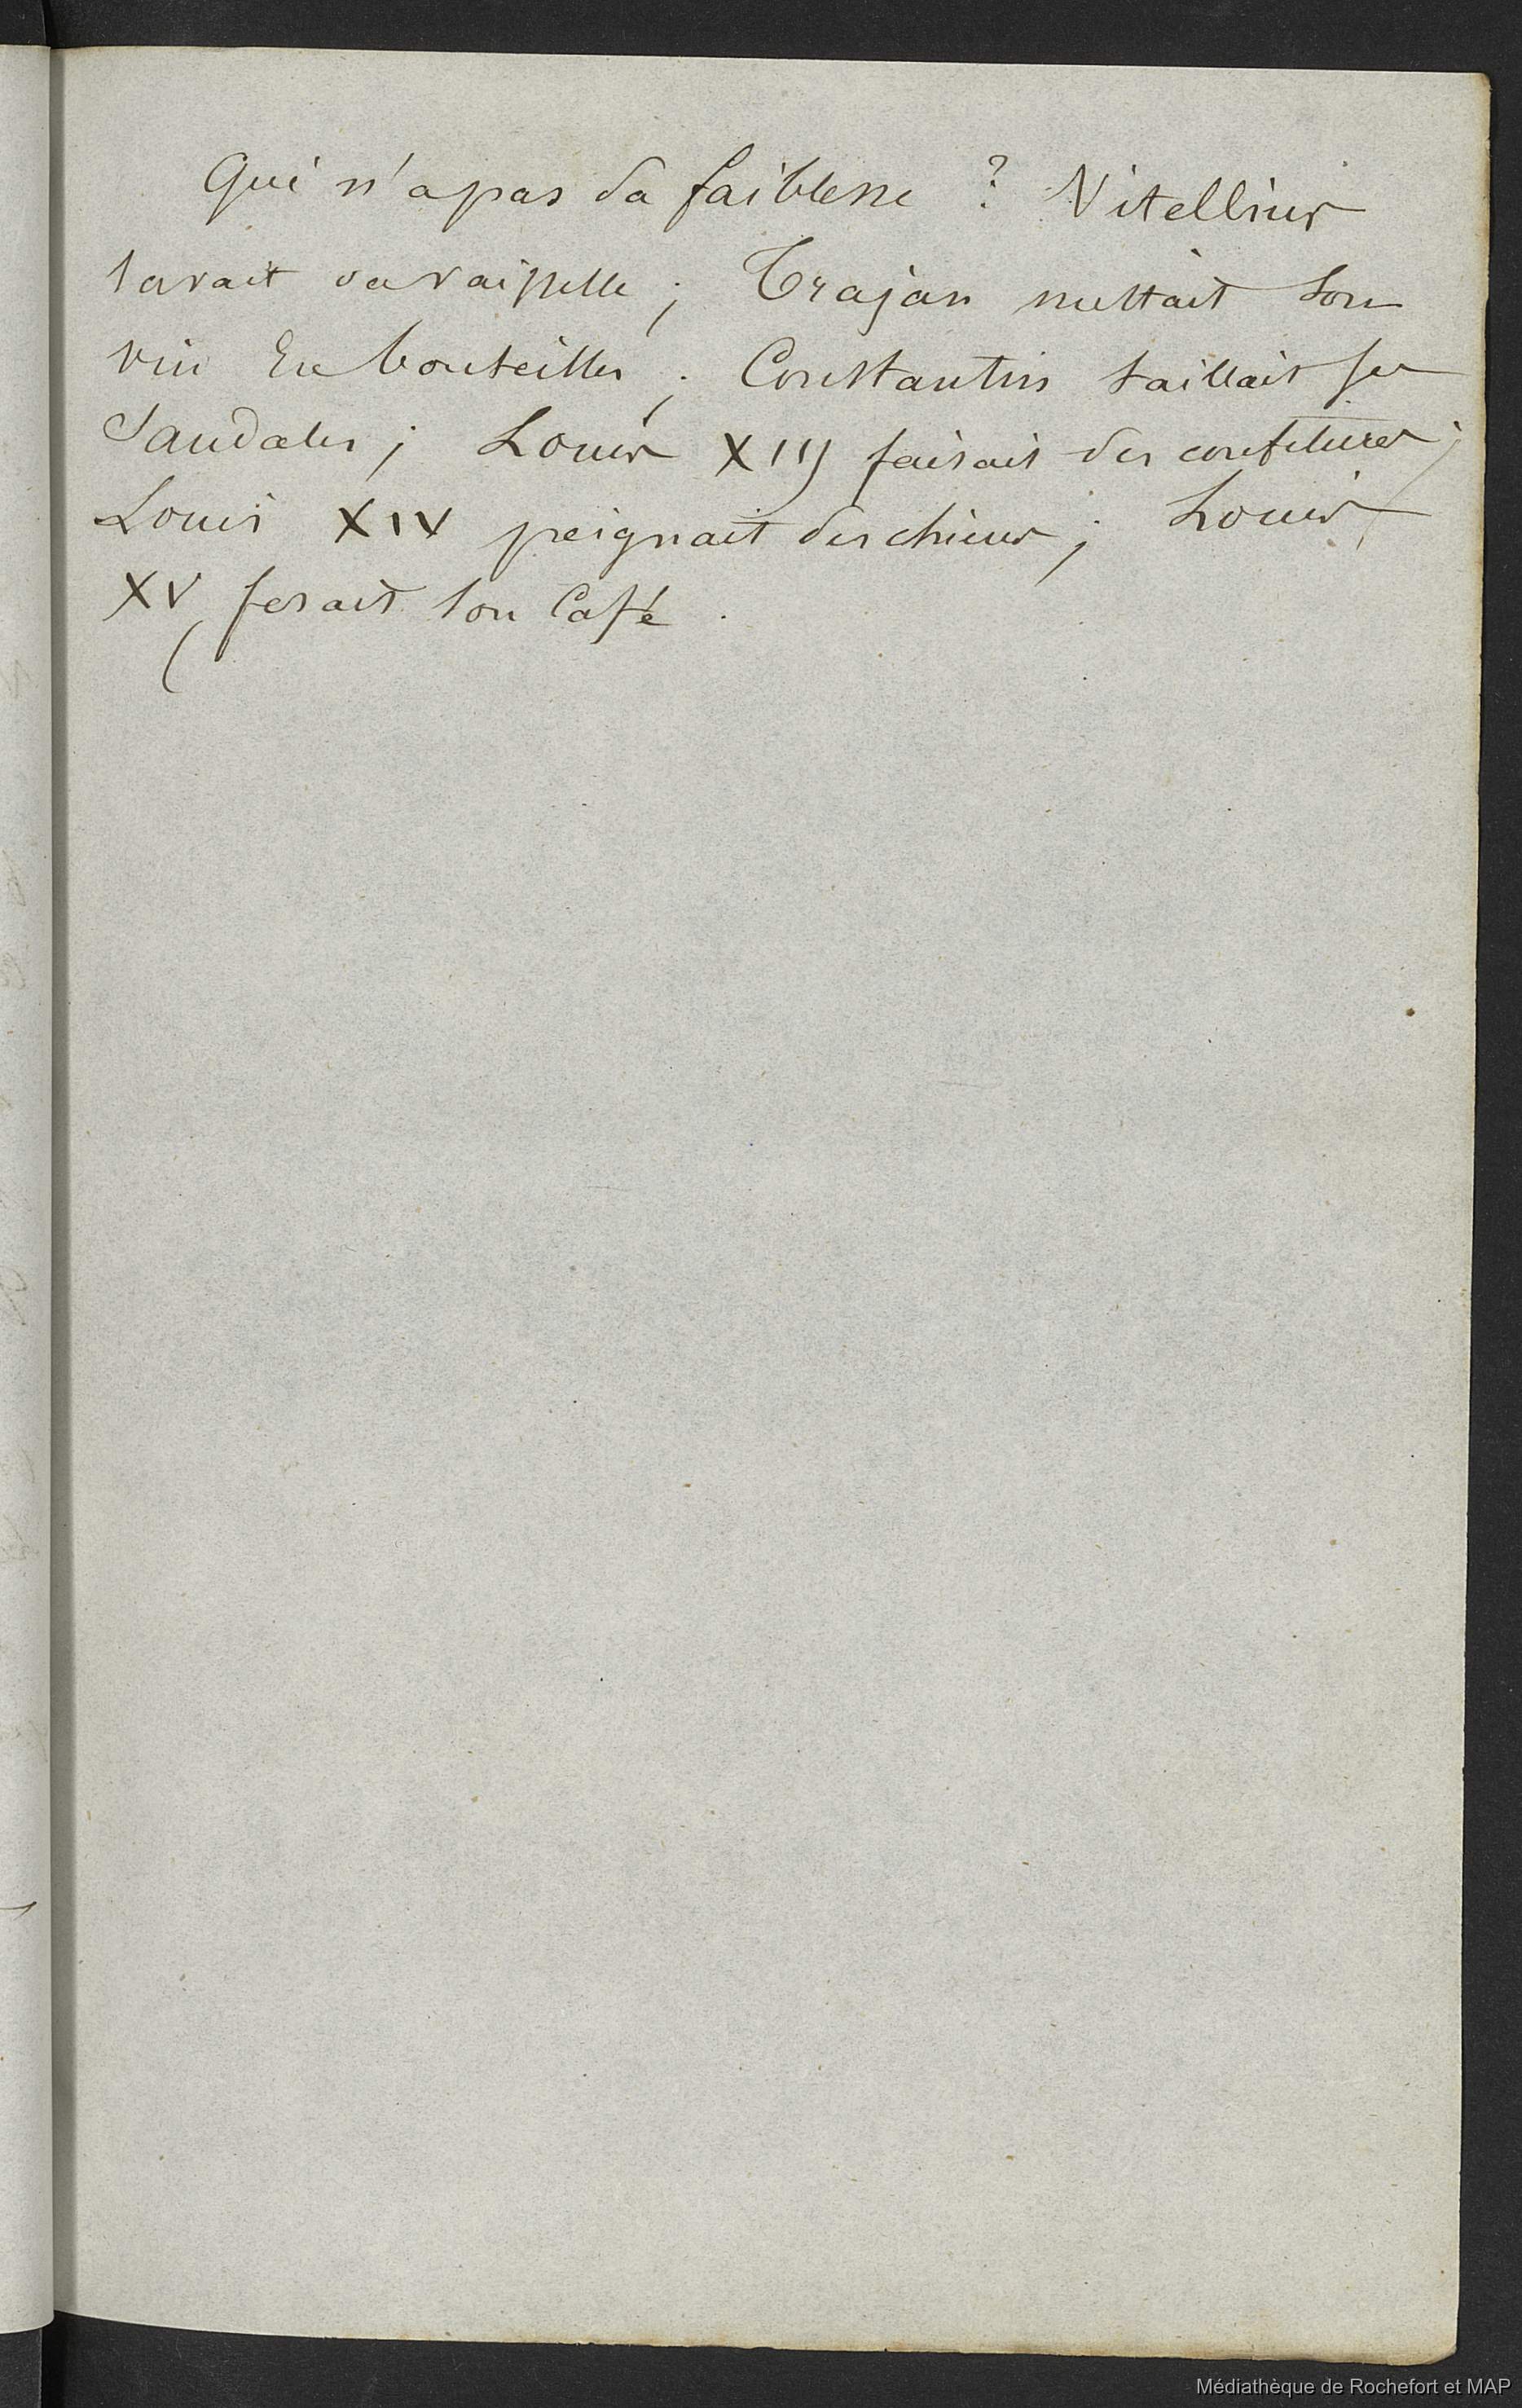 Qui n'a pas sa faiblesse ? Vitellius
lavait sa vaisselle ; Trajan mettait son
vin En bouteilles ; Constantin taillait ses
Sandales ; Louis XIII faisait des confitures ;
Louis XIV peignait des chiens ; Louis
XV fesait son Café .
Médiathèque de Rochefort et MAP